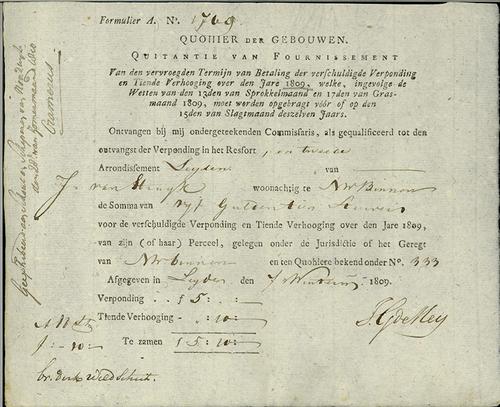 Formulier A. No. 1769
QUOHIER DER GEBOUWEN.
QUITANTIE VAN FOURNISSEMENT
Van den vervroegden Termijn van Betaling der verschuldigde Verponding
en Tiende Verhooging over den Jare 1809, welke, ingevolge de
Wetten van den 13den van Sprokkelmaand en 17den van Gras-
maand 1809, moet werden opgebragt vóór of op den
15den van Slagtmaand deszelven Jaars.
Ontvangen bij mij ondergeteekenden Commisfaris, als gequalificeerd tot den
ontvangst der Verponding in het Resfort, en tweede
Arrondissement Leyden van
J. van woonachtig te NW Binnen
de Somma van vyf Guldens tien Stuivers
voor de verschuldigde Verponding en Tiende Verhooging over den Jare 1809,
van zijn (of haar) Perceel, gelegen onder de Jurisdictie of het Geregt
van NW binnen en ten Quohiere bekend onder No. 333
Afgegeven in Leyden den 1809.
Verponding ƒ 5 : - : -
Tiende Verhooging - : 10 : -
Te zamen ƒ 5 : 10 : -
ƒ : - 10 : -